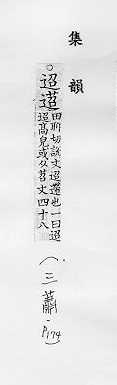 集韻
○迢䔏田聊切說文迢遰也一曰迢
迢高皃或从苕文四十八
(三蕭·P174)